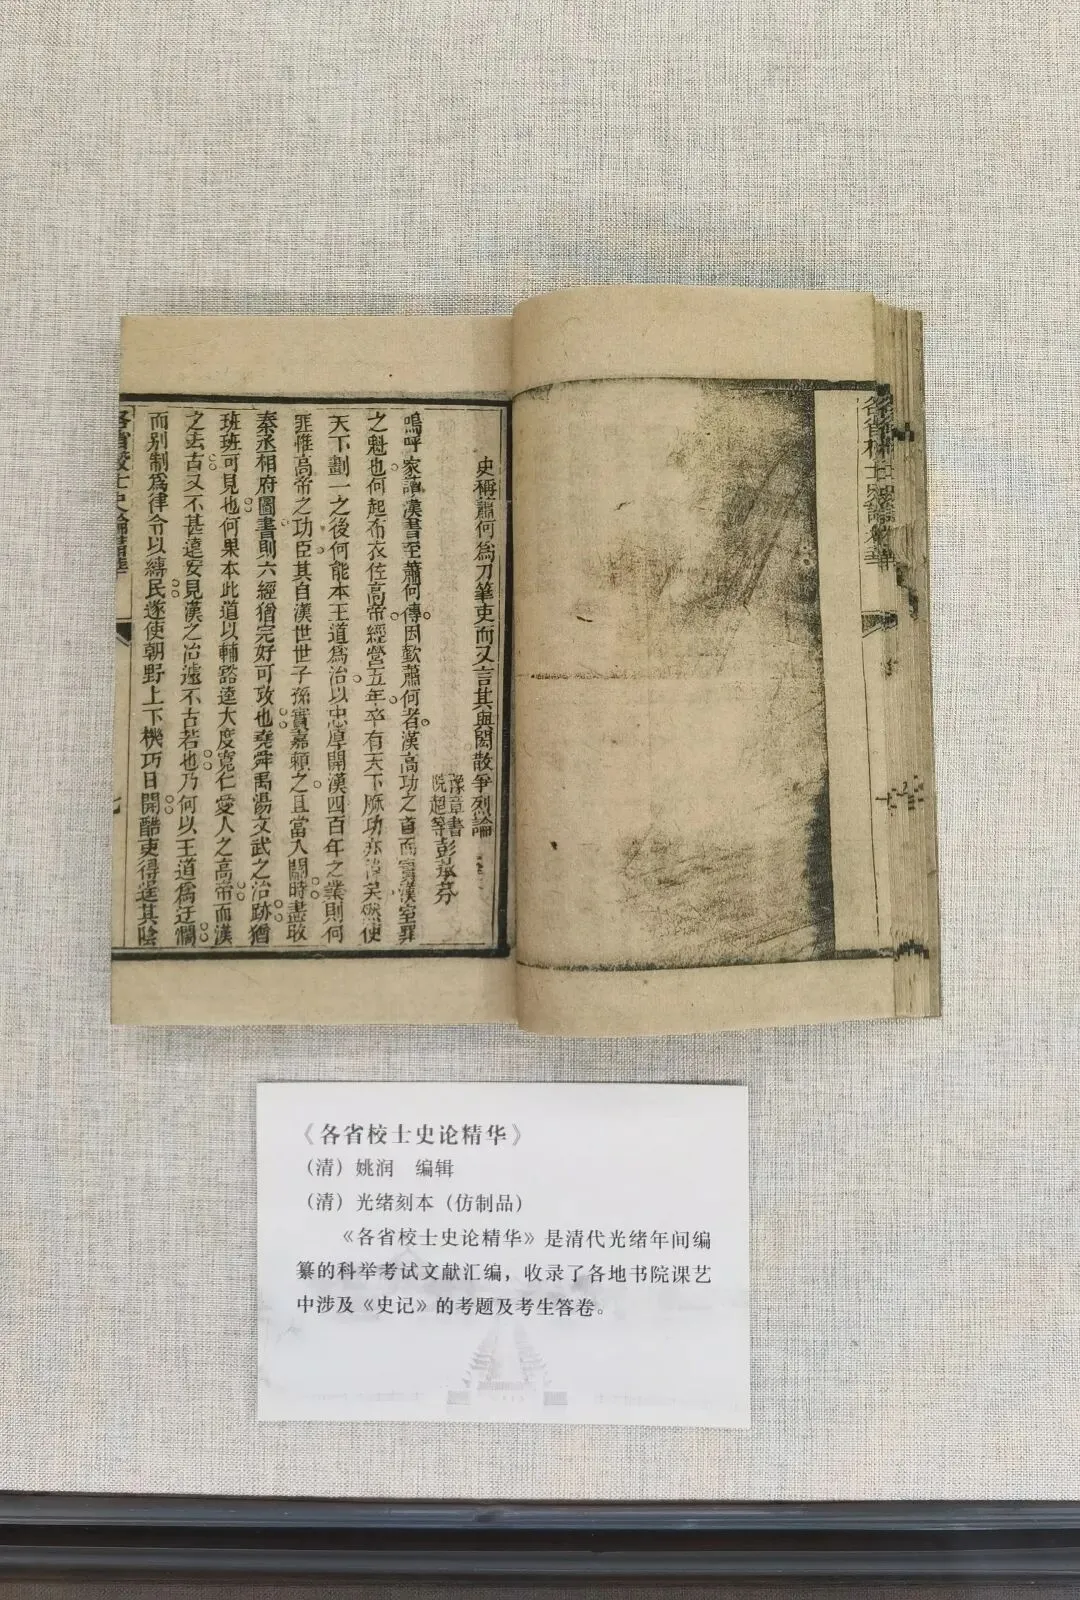 史稱蕭何為刀筆吏而又言其與閎散爭烈論
豫章書院超等彭
嗚呼家讀漢書至蕭何傳因歎蕭何者漢高功之首而實漢室罪
之魁也何起布衣佐高帝經營五年卒有天下厥功亦偉矣然使
天下劃一之後何能本王道為治以忠厚開漢四百年之業則何
匪惟高帝之功臣其自漢世世子孫實嘉賴之且當入關時盡收
秦丞相府圖書則六經猶完好可攷也堯舜禹湯文武之治跡猶
班班可見也何果本此道以輔豁達大度寬仁愛人之高帝而漢
之去古又不甚遠安見漢之治遽不古若也乃何以王道為迂闊
而別制為律令以縛民遂使朝野上下機巧日開酷吏得逞其陰
各省校士史論精華
七
各省校士史論精華
《各省校士史论精华》
（清）姚润　编辑
（清）光绪刻本（仿制品）
《各省校士史论精华》是清代光绪年间编
纂的科举考试文献汇编，收录了各地书院课艺
中涉及《史记》的考题及考生答卷。